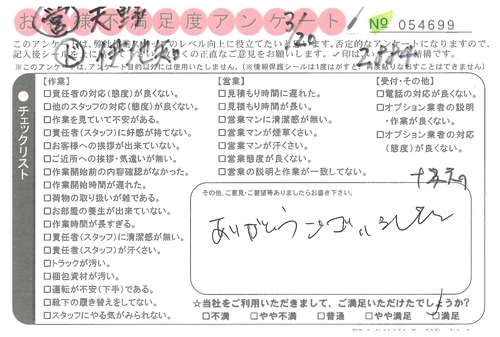 お客様不満足度アンケート
㊂営 天野
3/20
No 054699
このアンケートは、弊社
のレベル向上に役立てたい
います。否定的なアンケートになりますので、
記入後シール
くの正直なご意見をお願いします。
✓印は
結構です。
(※このアンケートは、アンケート
には使用いたしません。(※情報保護シールは1度はがすと、再度貼りなおすことはできません)
チェックリスト
【作業】
□責任者の対応(態度)が良くない。
□他のスタッフの対応(態度)が良くない。
□作業を見ていて不安がある。
□責任者(スタッフ)に好感が持てない。
□お客様への挨拶が出来ていない。
□ご近所への挨拶・気遣いが無い。
□作業開始前の内容確認がなかった。
□作業開始時間が遅れた。
□荷物の取り扱いが雑である。
□お部屋の養生が出来ていない。
□作業時間が長すぎる。
□責任者(スタッフ)に清潔感が無い。
□責任者(スタッフ)が汗くさい。
□トラックが汚い。
□梱包資材が汚い。
□運転が不安(下手)である。
□靴下の履き替えをしてない。
□スタッフにやる気がみられない。
【営業】
□見積もり時間に遅れた。
□見積もり時間が長い。
□営業マンに清潔感が無い。
□営業マンが煙草くさい。
□営業マンが汗くさい。
□営業態度が良くない。
□営業の説明と作業が一致してない。
【受付・その他】
□電話の対応が良くない。
□オプション業者の説明
・作業が良くない。
□オプション業者の対応
(態度)が良くない。
その他、ご意見・ご要望等ありましたらお書き下さい。
ありがとうございました
☆当社をご利用いただきまして、ご満足いただけたでしょうか?
□不満 □やや不満 □普通 □やや満足 □満足